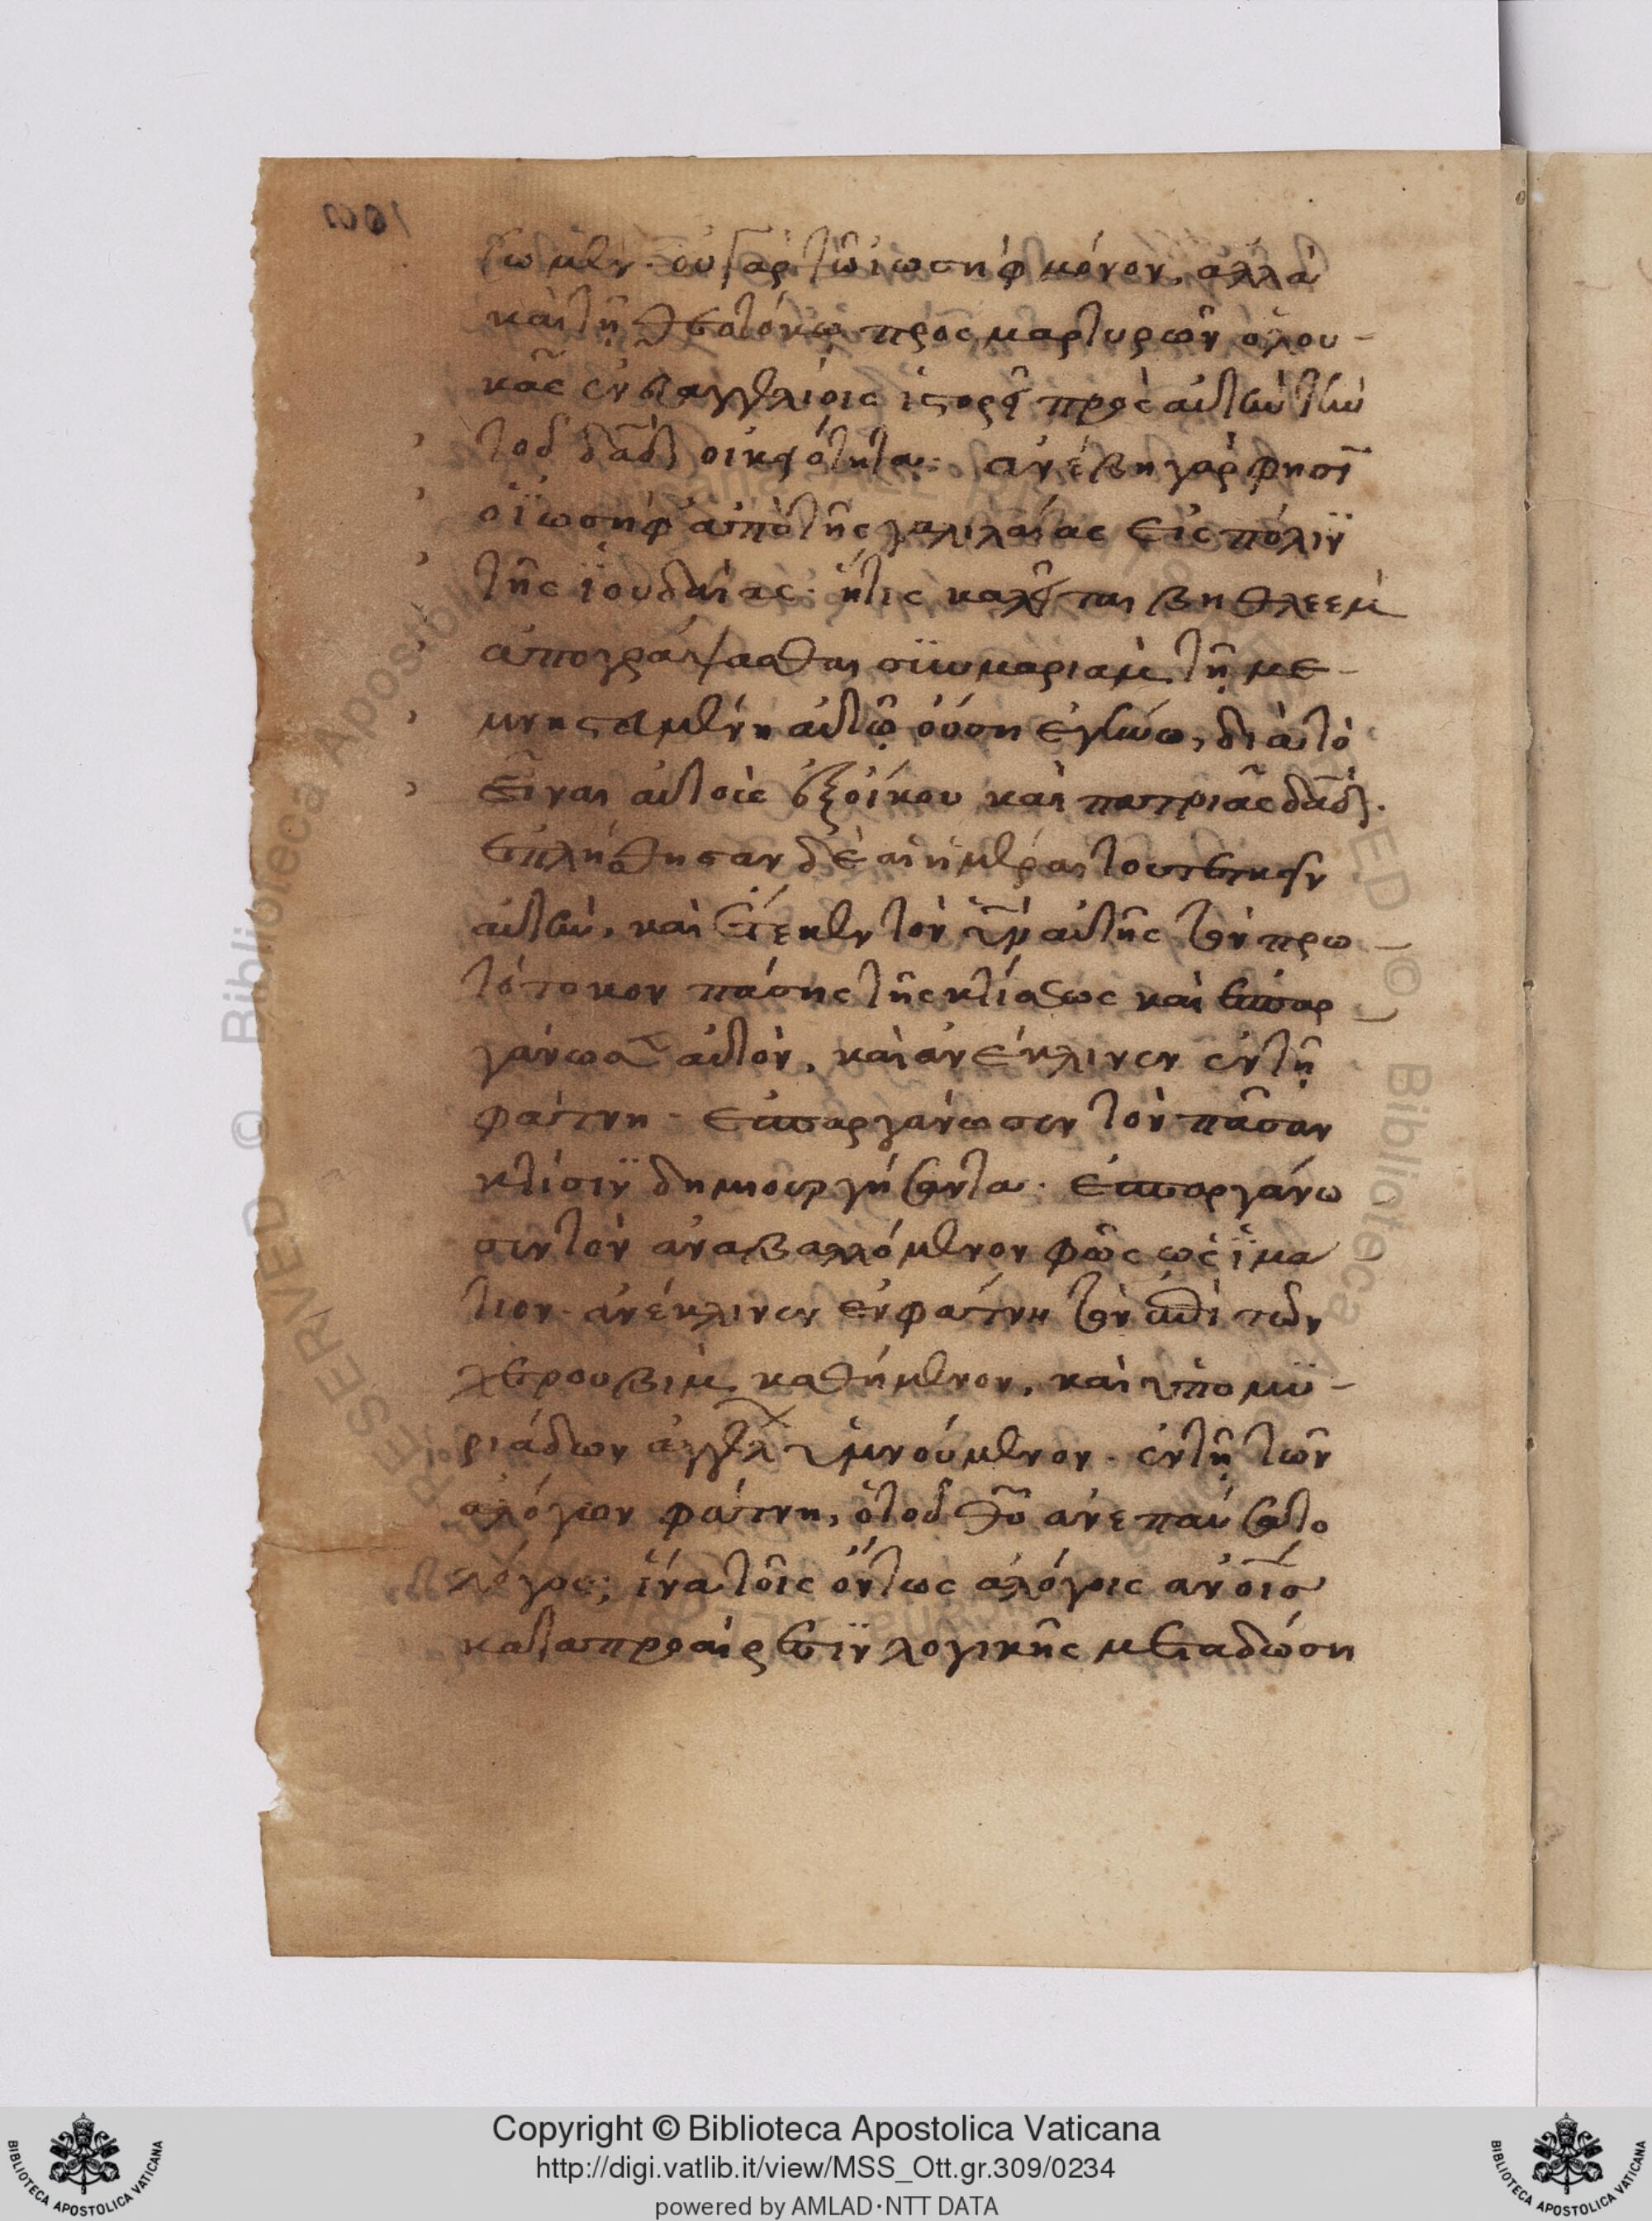 σωμεν· οὐ γὰρ τῶ ἰωσὴφ μόνον, ἀλλὰ
καὶ τῆ θεοτόκω προσμαρτυρῶν ὁ λου-
κᾶς ἐν εὐαγγελίοις ἱστορεῖ πρὸς αὐτὴν τὴν
τοῦ δα̅δ οἰκειότητα· ἀνέβη γὰρ φησὶ
ὁ ἰωσὴφ ἀπὸ τῆς γαλιλαίας εἰς πόλιν
τῆς ἰουδαίας· ἥτις καλεῖται βηθλεεὶμ
ἀπογράψασθαι σὺν μαριὰμ τῆ με-
μνηστευμένη αὐτῶ οὔση ἐγκύω, διὰ τὸ
εἶναι αὐτοὺς ἐξ οἴκου καὶ πατριᾶς δα̅δ.
ἐπλήσθησαν δὲ αἱ ἡμέραι τοῦ τεκεῖν
αὐτὴν, καὶ ἔτεκεν τὸν υ̅ν αὐτῆς τὸν πρω-
τότοκον πάσης τῆς κτίσεως καὶ ἐσπαρ
γάνωσεν αὐτὸν, καὶ ἀνέκλινεν ἐν τῆ
φάτνη· ἐσπαργάνωσεν τὸν πᾶσαν
κτίσιν δημιουργήσαντα· ἐσπαργάνω
σεν τὸν ἀναβαλλόμενον φῶς ὡς ἱμά
τιον· ἀνέκλινεν ἐν φάτνη τὸν ἐπὶ τῶν
χερουβὶμ καθήμενον, καὶ ὑπὸ μυ-
ριάδων ἀγγέλων ὑμνούμενον· ἐν τῆ τῶν
ἀλόγων φάτνη, ὁ τοῦ θ̅υ ἀνεπαύσατο
λόγος, ἵνα τοῖς ὄντως ἀλόγοις ἀν̅οις
κατὰ προαίρεσιν λογικῆς μεταδώση
Copyright © Biblioteca Apostolica Vaticana
http://digi.vatlib.it/view/MSS_Ott.gr.309/0234
powered by AMLAD·NTT DATA